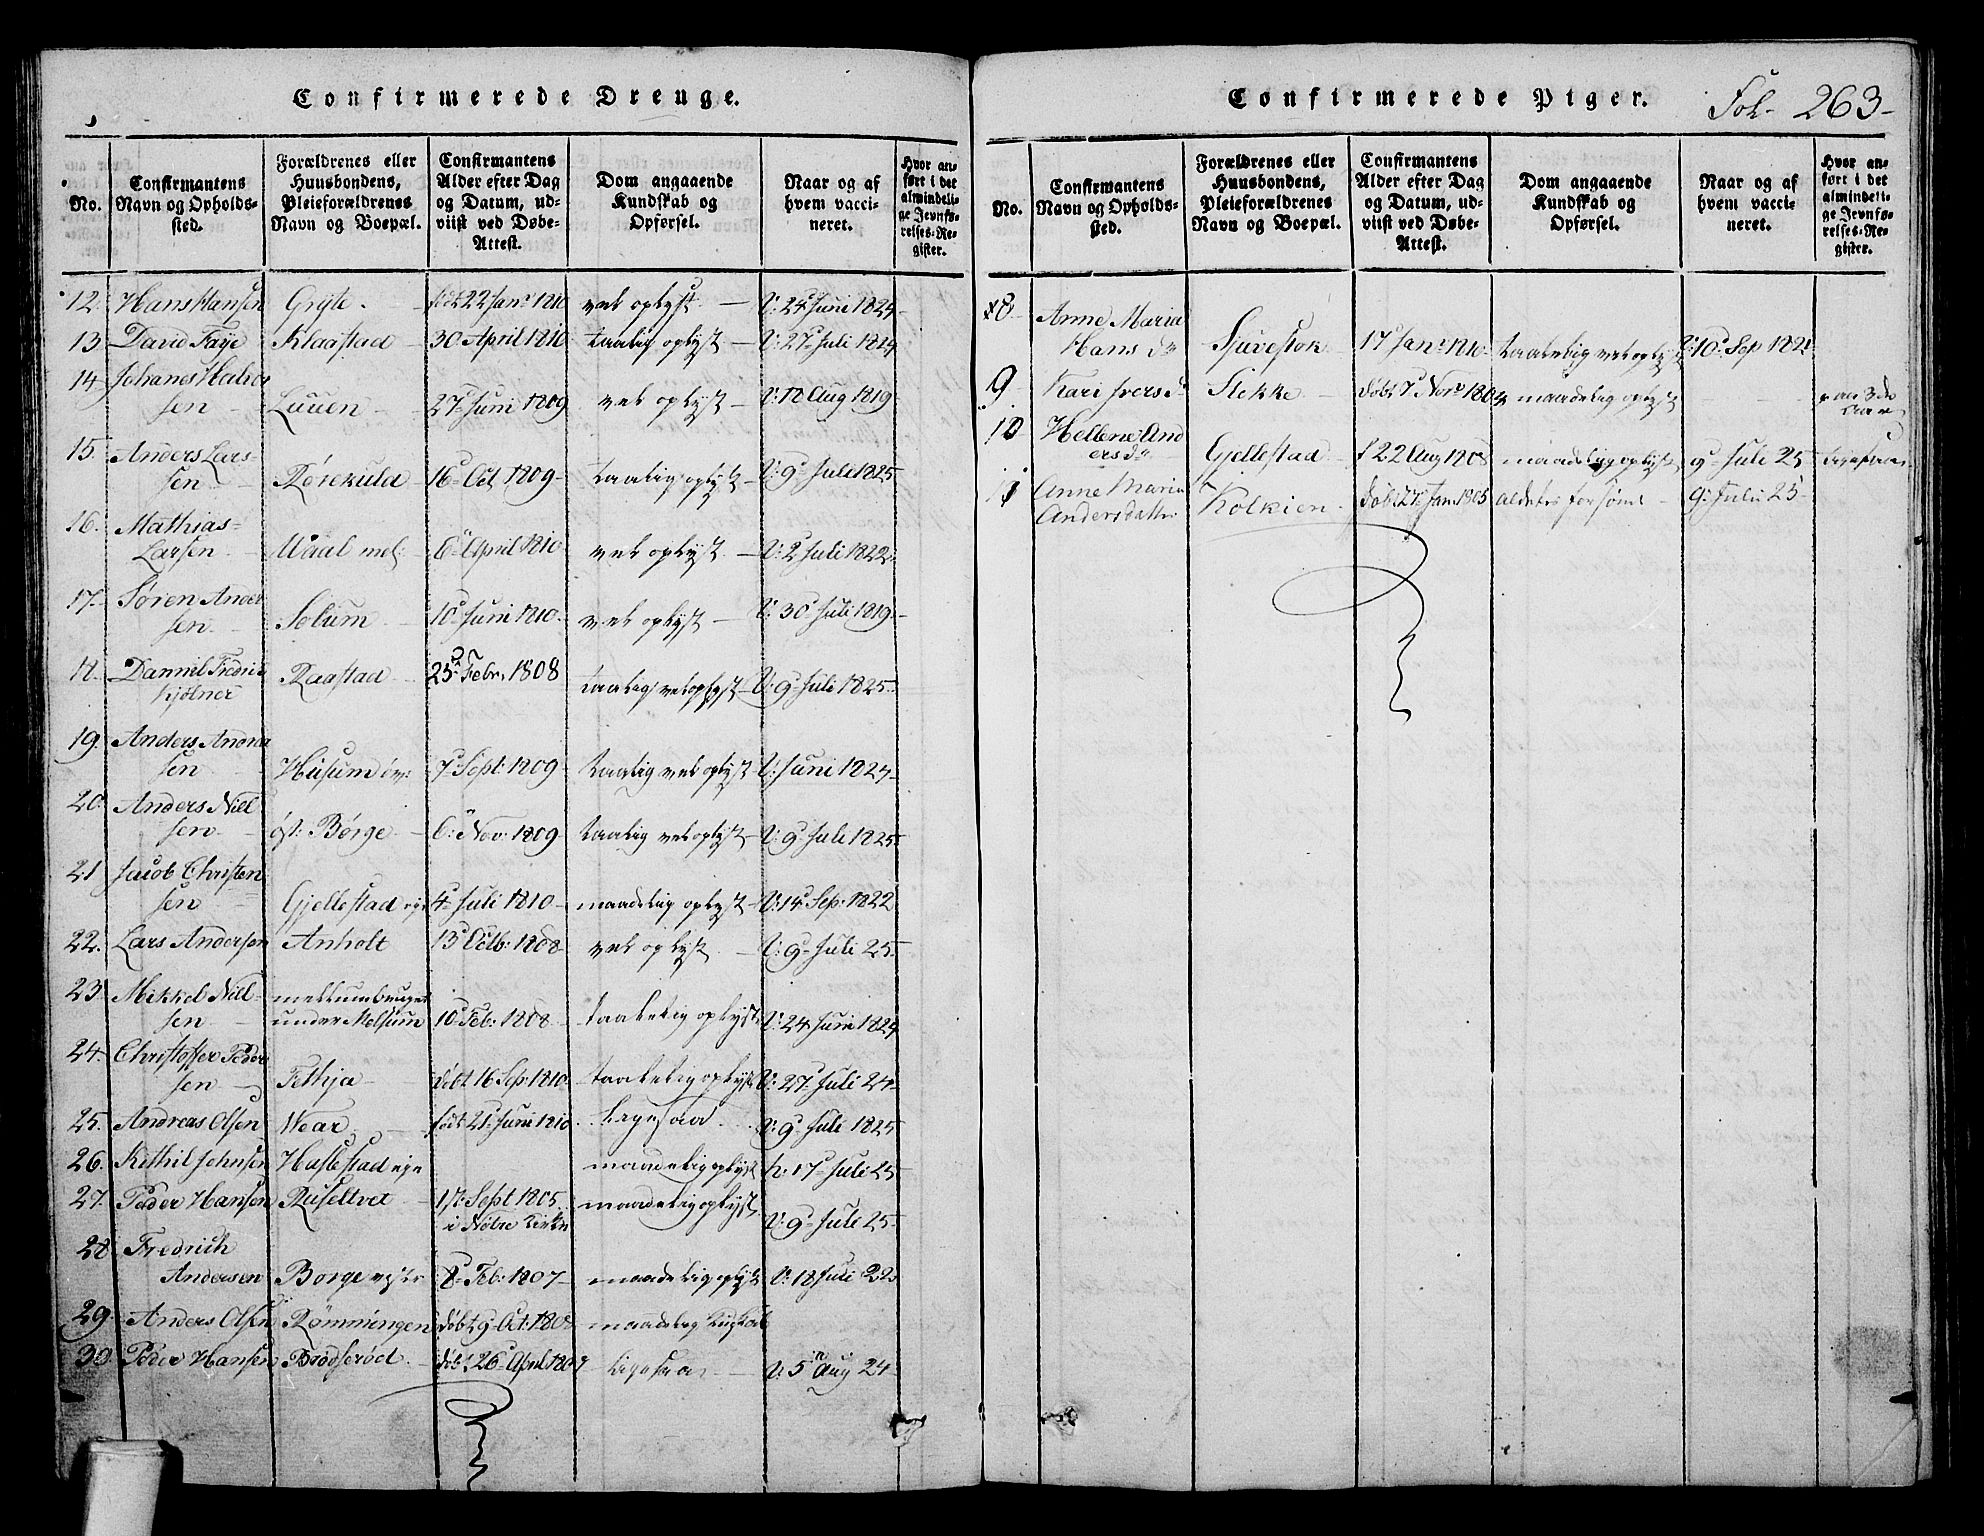 Confirmerede Drenge.
No.
Confirmantens Navn og Opholds-sted.
Forældrenes eller Huusbondens, Pleieforældrenes Navn og Boepæl.
Confirmantens Alder efter Dag og Datum, ud-viist ved Døbe-Attest.
Dom angaaende Kundskab og Opførsel.
Naar og af hvem vacci-neret.
Hvor an-ført i det almindeli-ge Jevnfø-relses-Re-gister.
12. Hans Hansen Gryte. født 22 Janr 1810 vel oplyst. V: 24 Juni 1824
13 David Faye Klaastad 30 April 1810 taalig oplyst V: 27 Juli 1819
14. Johanes Halvor
sen Luuen 27 Juni 1809 vel oplyst V: 18 Aug 1819
15. Anders Lars-
sen Rørekula 16 Oct 1809 taalig oplyst V: 9 Juli 1825
16. Mathias
Larsen Waal mel: 6 April 1810 vel oplyst V: 2 Juli 1822
17. Søren Ander
sen Solum 10 Juni 1810 vel oplyst V: 30 Juli 1819
18. Danniel Fredric
Kjølner Raastad 25 Febr. 1808 taalig vel oplyst V: 9 Juli 1825
19. Anders Andrea
sen Husum øv: 7 Sept: 1809 taalig vel oplyst V: Juni 1824
20. Anders Niel
sen øst: Børge 6: Nov: 1809 taalig vel oplyst V: 9 Juli 1825
21 Jacob Christen
sen Gjellestad eje 4 Juli 1810 maadelig oplyst V: 14 Sep: 1822
22. Lars Andersen Anholt 13 Octb: 1808 vel oplyst V: 9 Juli 25
23. Mikkel Niel-
sen under Melsum 10 Feb: 1808 taalelig oplyst V: 24 Juni 1824
24. Christoffer Peder
sen Fethja døbt 16 Sep: 1810 taalelig oplyst V: 27 Juli 24
25. Andreas Olsen Wear født 21 Juni 1810 ligesaa V: 9 Juli 1825
26. Kethil Johnsen Haslestad eje maadelig oplyst h: 17 Juli 25
27. Peder Hansen Ruseltvet 17: Sept 1805 maadelig oplyst
i Nøtre Kirke V: 9 Juli 25
28 Fredrich
Andersen Borge vestr 8 Feb: 1807 maadelig oplyst V: 18 Juli 22
29. Anders Olsen Rømmingen døbt 9 Oct: 1808 maadelig
30 Peder Hansen Brødserød. døbt 26 April 1809 ligesaa V: 5 Aug 24
Confirmerede Piger. Fol- 263-
No.
Confirmantens Navn og Opholds-sted.
Forældrenes eller Huusbondens, Pleieforældrenes Navn og Boepæl.
Confirmantens Alder efter Dag og Datum, ud-viist ved Døbe-Attest.
Dom angaaende Kundskab og Opførsel.
Naar og af hvem vacci-neret.
Hvor an-ført i det almindeli-ge Jevnfø-relses-Re-gister.
8 Anne Maria
Hans dr Sjuestok 17 Janr 1810 taalelig vel oplyst V: 10 Sep 1821
9 Kari Ivers d Stikke døbt 7 Novr 1804 maadelig oplyst
10 Hellene And
ers dr Gjellestad f 22 Aug 1808 maadelig oplyst 9 Juli 25
11 Anne Maria Kolkien døbt 27 Jan 1805 9 Julii 25
Andersdatter